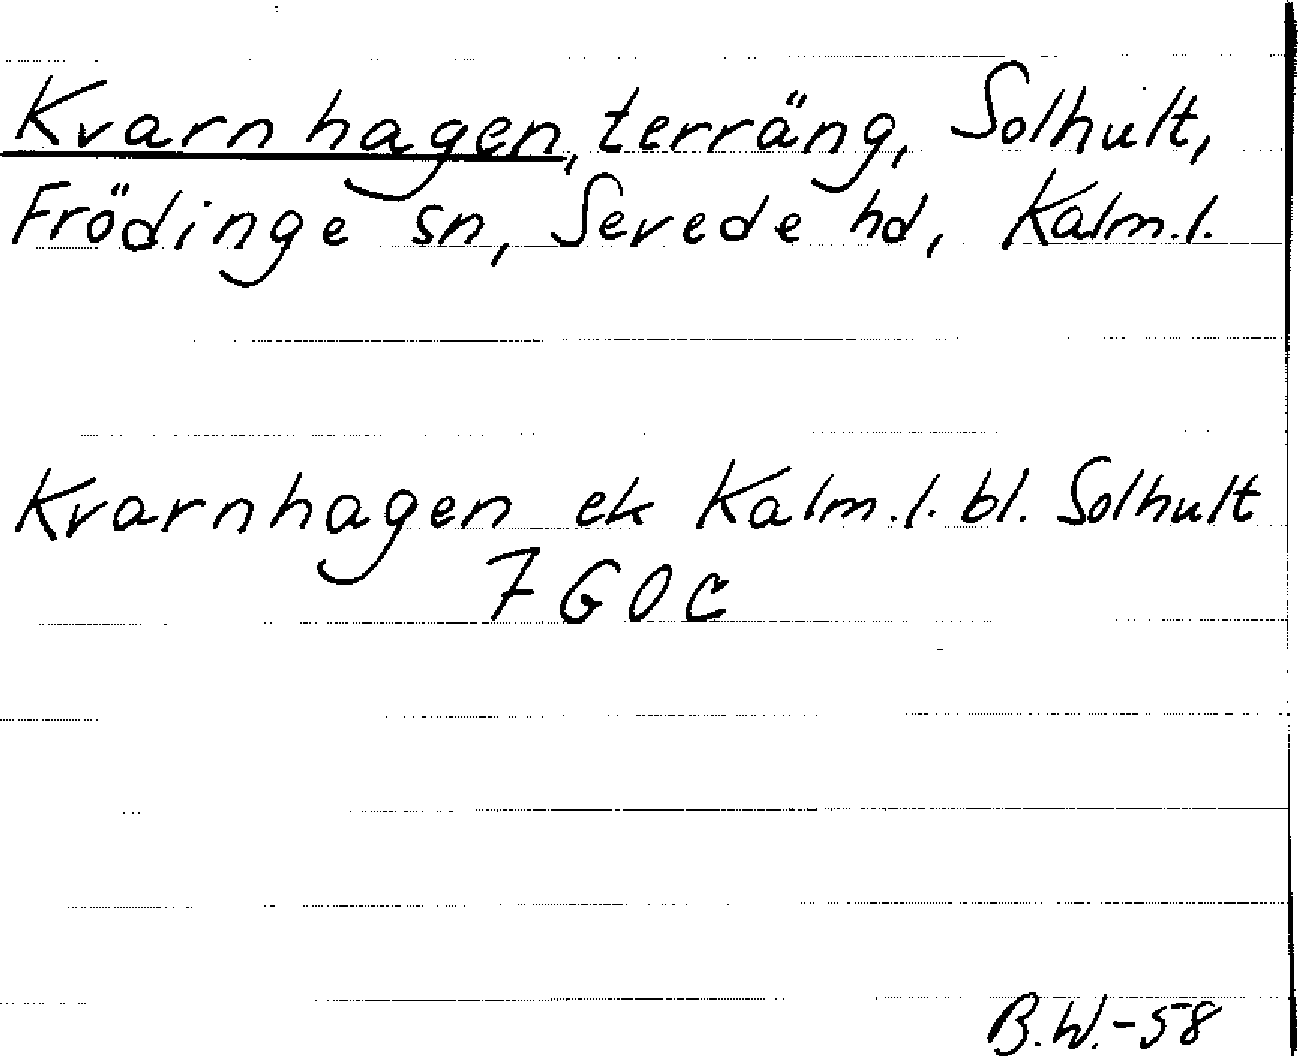 Kvarnhagen, terräng, Solhult,
Frödinge sn, Sevede hd, Kalm.l.
Kvarnhagen ek Kalm.l. bl. Solhult
7G0c
B.W.-58